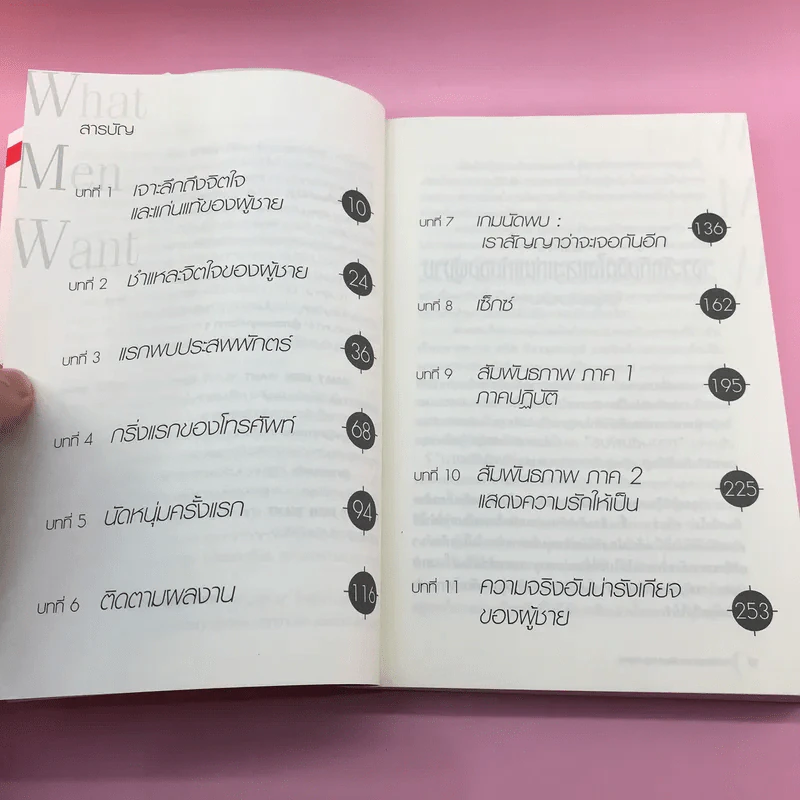 What
สารบัญ
Men
Want
บทที่ 1 เจาะลึกถึงจิตใจ
และแก่นแท้ของผู้ชาย 10
บทที่ 2 ชำแหละจิตใจของผู้ชาย 24
บทที่ 3 แรกพบประสพพักตร์ 36
บทที่ 4 กริ่งแรกของโทรศัพท์ 68
บทที่ 5 นัดหนุ่มครั้งแรก 94
บทที่ 6 ติดตามผลงาน 116
บทที่ 7 เกมนัดพบ :
เราสัญญาว่าจะเจอกันอีก 136
บทที่ 8 เซ็กซ์ 162
บทที่ 9 สัมพันธภาพ ภาค 1
ภาคปฏิบัติ 195
บทที่ 10 สัมพันธภาพ ภาค 2
แสดงความรักให้เป็น 225
บทที่ 11 ความจริงอันน่ารังเกียจ
ของผู้ชาย 253